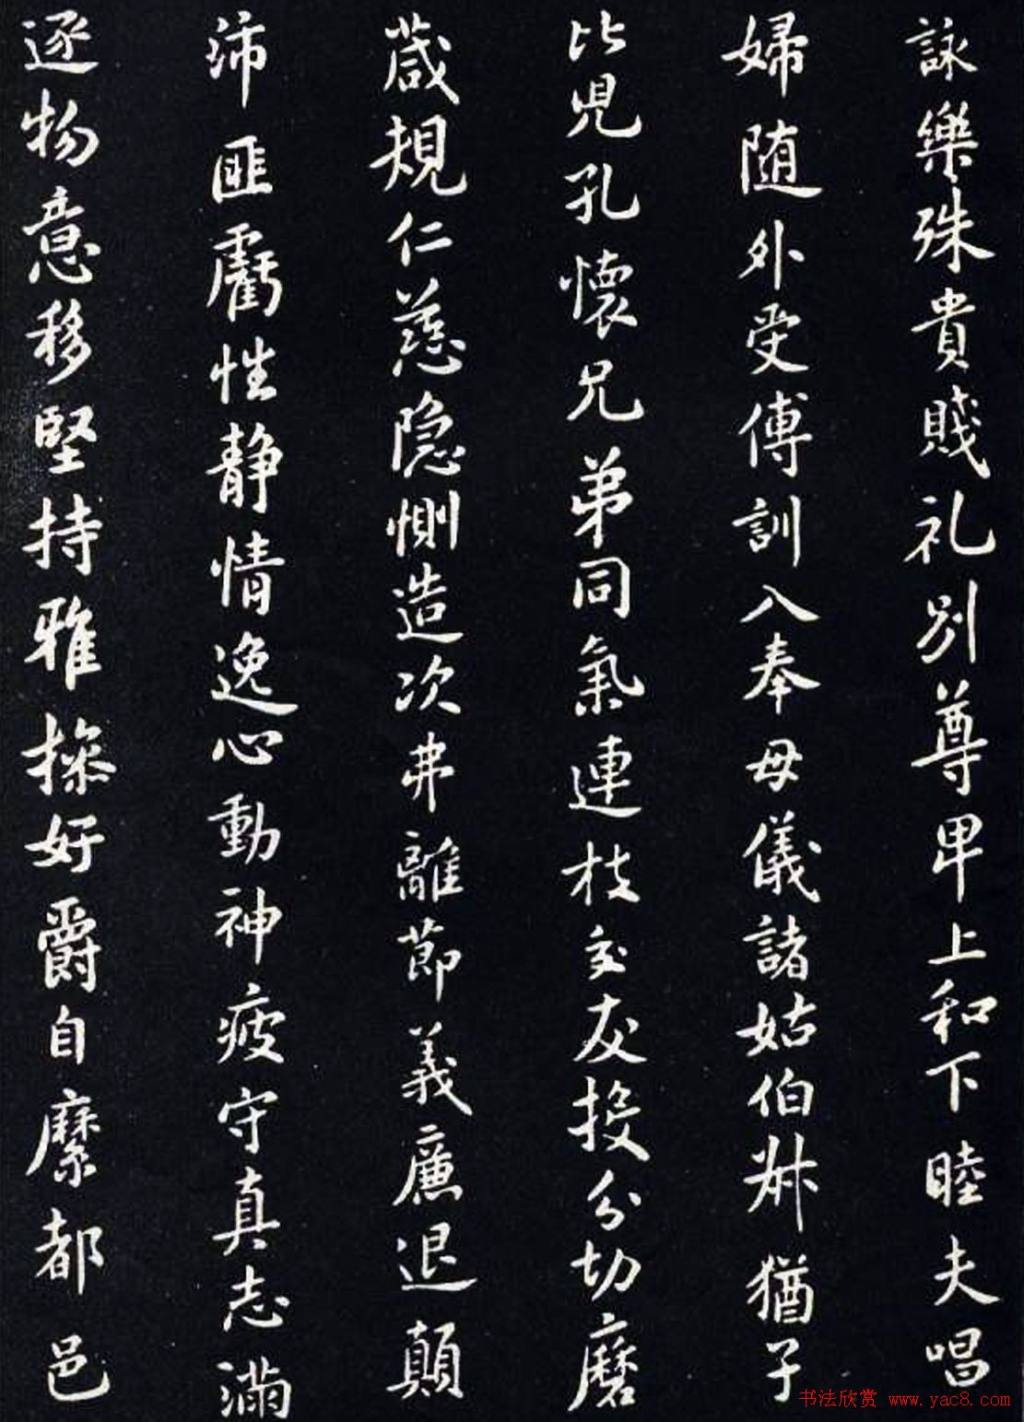 詠樂殊貴賤礼別尊卑上和下睦夫唱
婦随外受傅訓入奉母儀諸姑伯叔猶子
比児孔懐兄弟同氣連枝交友投分切磨
葴規仁慈隐惻造次弗離節義廉退顛
沛匪虧性静情逸心動神疲守真志滿
逐物意移堅持雅操好爵自縻都邑
书法欣赏 www.yac8.com